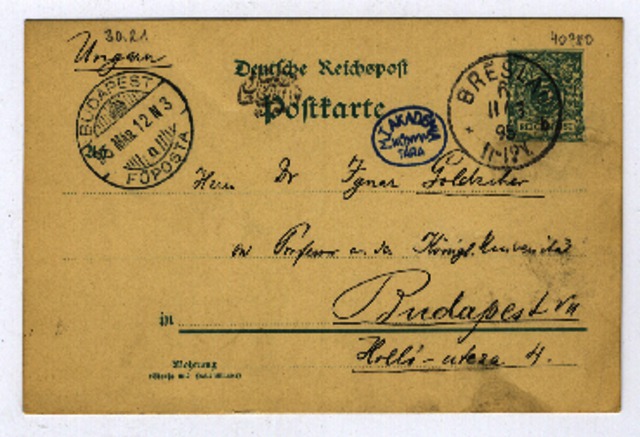 30.21
40980
Ungarn
Deutsche Reichspost
Postkarte
BUDAPEST
95 MAR. 12 N 3
FŐPOSTA
M.T. AKADÉMIA
KÖNYV
TÁRA
BRESLAU
11 3
95
11-12V.
Herrn Dr Ignaz Goldziher
Professor a. der Königl. Universität
in Budapest VII
Holló-utcza 4.
Wohnung